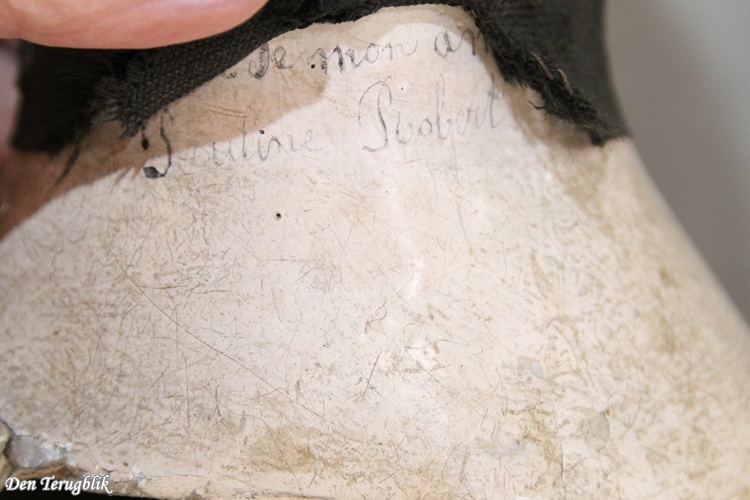 de mon am
Pauline Robert
Den Terugblik